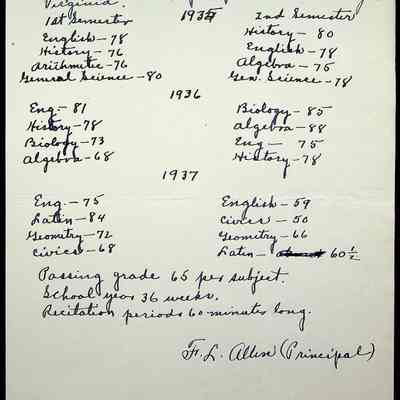 Virginia.
1st Semester 1935 2nd Semester
English - 78 History - 80
History - 76 English - 78
Arithmetic - 76 Algebra - 75
General Science - 80 Gen. Science - 78
1936
Eng. - 81 Biology - 85
History - 78 Algebra - 88
Biology - 73 Eng - 75
Algebra - 68 History - 78
1937
Eng. - 75 English - 59
Latin - 84 Civics - 50
Geometry - 72 Geometry - 66
Civics - 68 Latin - 60 1/2
Passing grade 65 per subject.
School year 36 weeks.
Recitation periods 60 minutes long.
F. L. Allen (Principal)